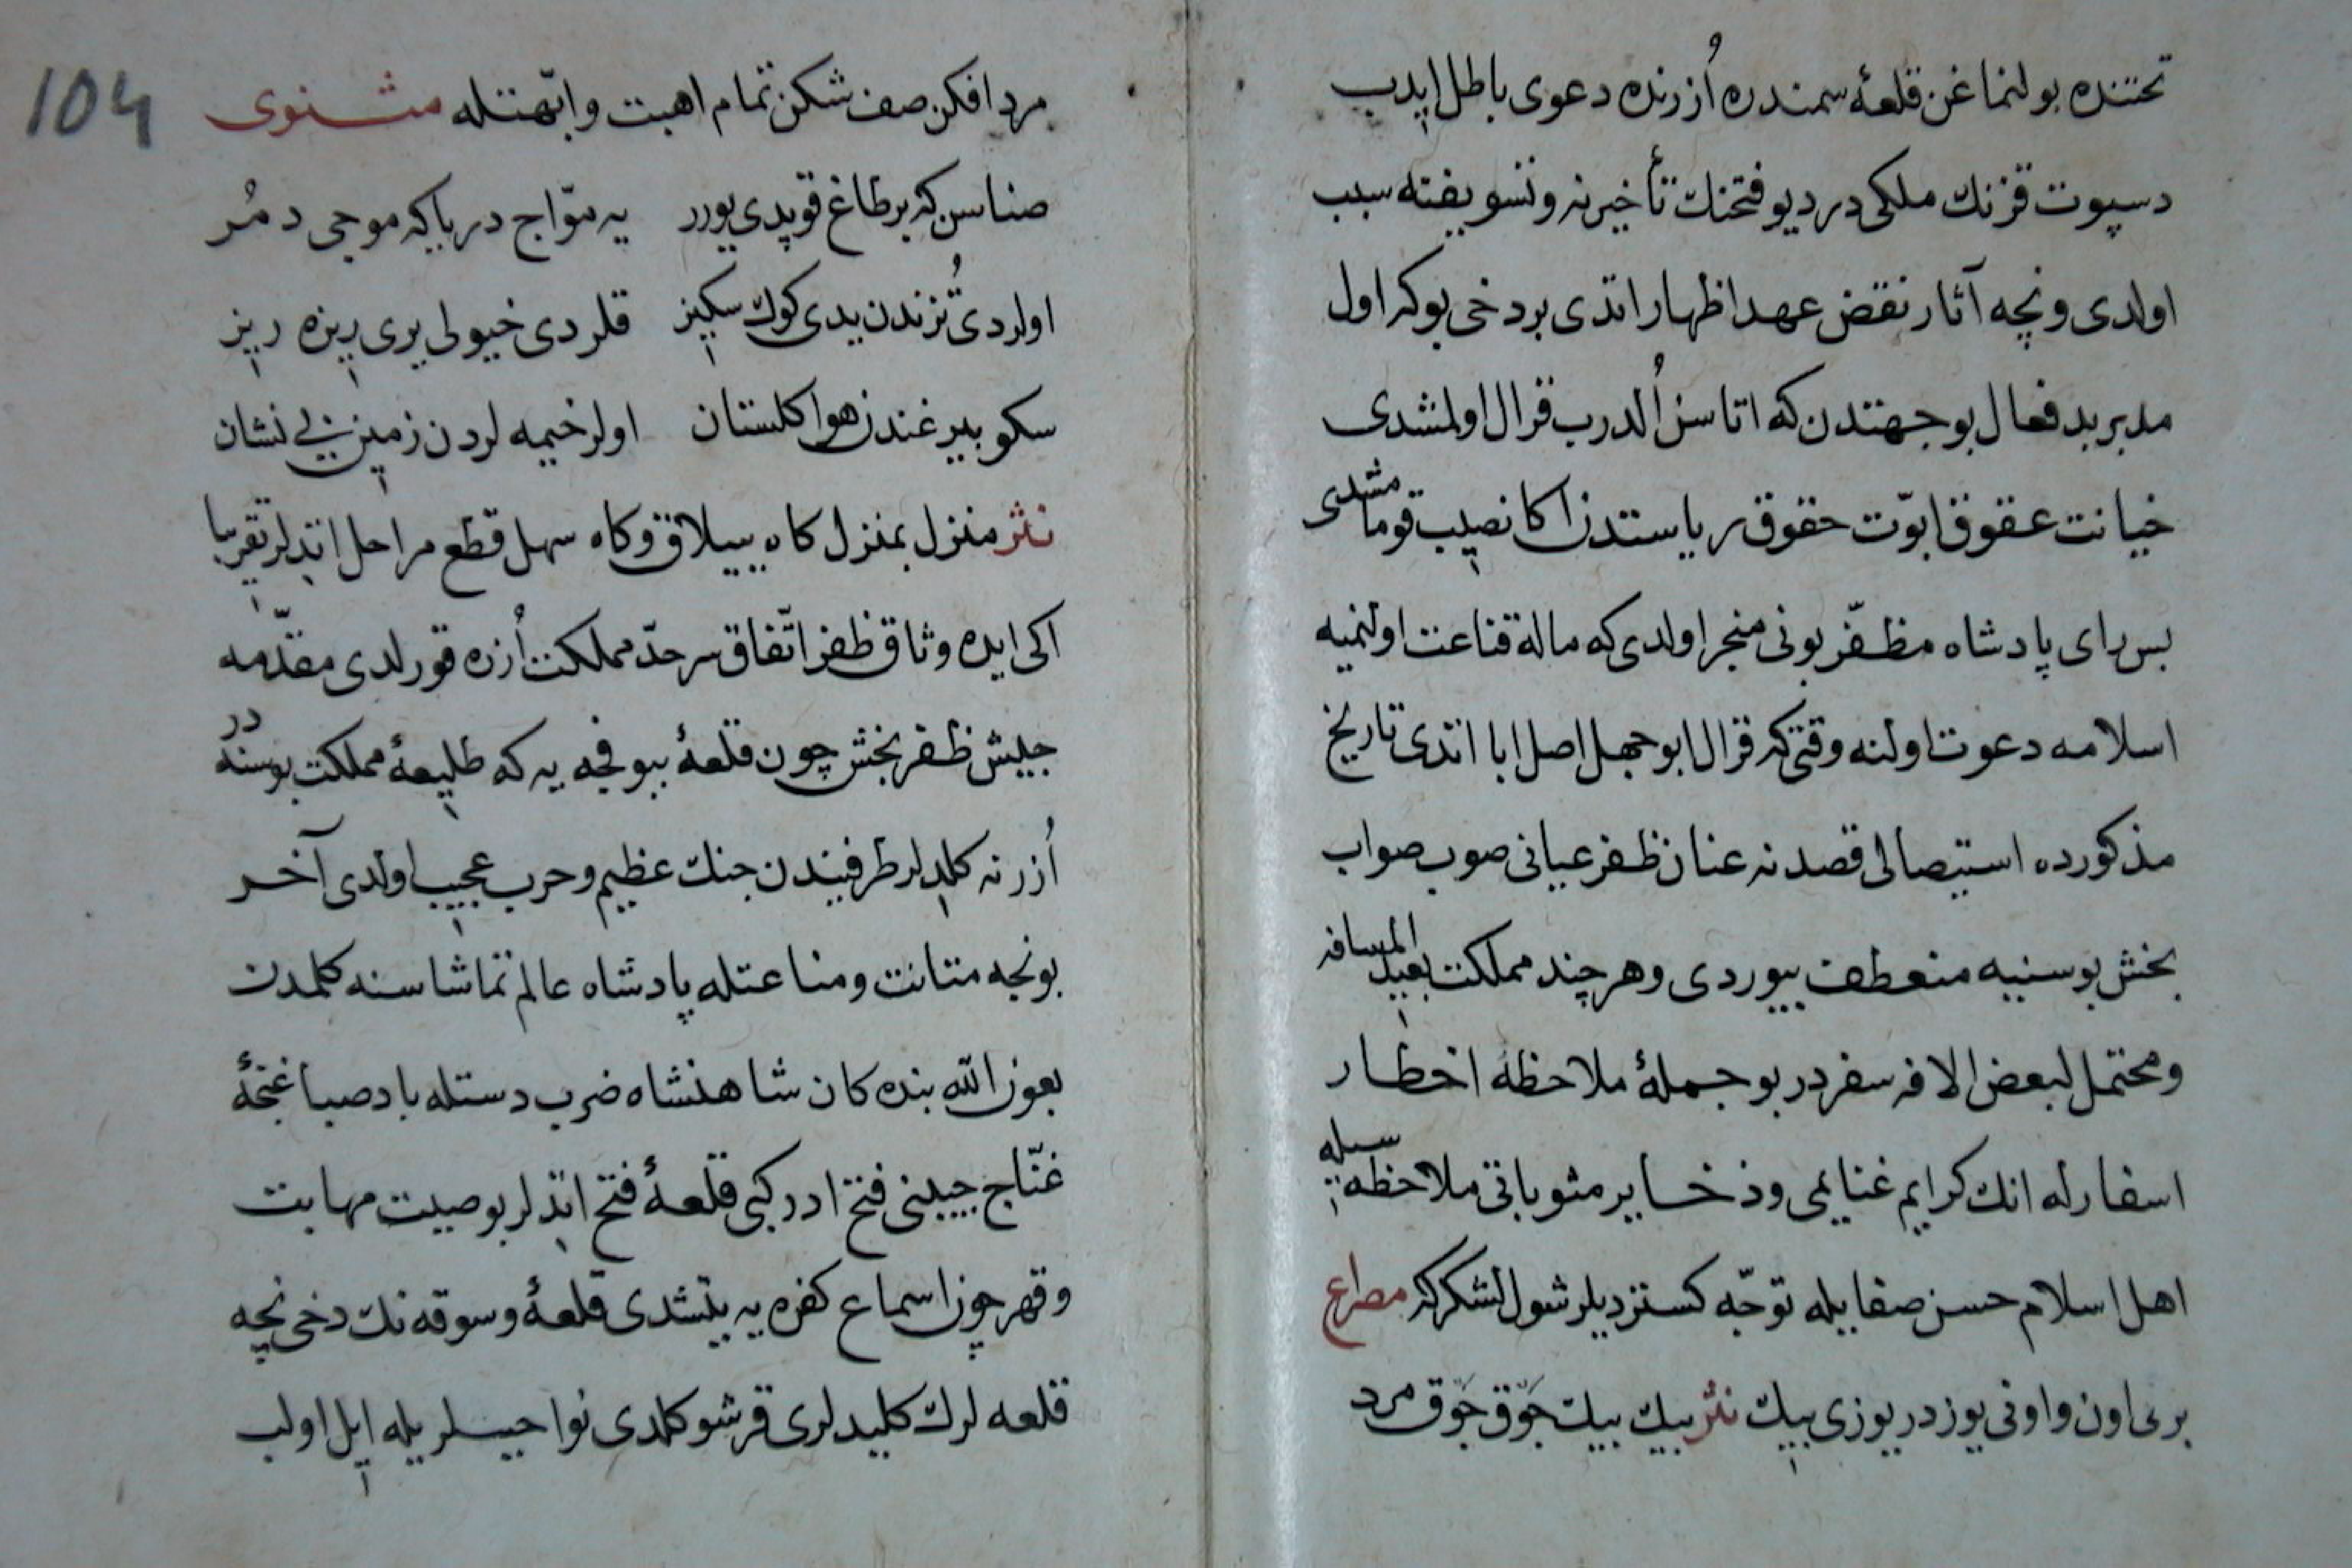 تحتنده بولنماغن قلعهٔ سمندره اُزرنده دعوی باطل ایدب
دسپوت قزنك ملكی در دیو فتحنك تأخیرنه و تسویفنه سبب
اولدی و نچه آثار نقض عهد اظهار اتدی بر دخی بو كه اول
مدبر بد فعال بو جهتدن كه اتاسن اُلدرب قرال اولمشدی
خیانت عقوق ابوّت حقوق ریاستدن اكا نصیب قومامشدی
پس رای پادشاه مظفّر بونی منجر اولدی كه ماله قناعت اولنمیه
اسلامه دعوت اولنه وقتی كه قرال ابو جهل اصل ابا اتدی تاریخ
مذكورده استیصالی قصدنه عنان ظفر عیانی صوب صواب
بخش بوسنیه منعطف بیوردی و هر چند مملكت بعید المسافه
و محتمل لبعض الافه سفر در بو جملهٔ ملاحظهٔ اخطار
اسفارله انك كرایم غنایمی و ذخایر مثوباتی ملاحظه سیله
اهل اسلام حسن صفایله توجّه كستردیلر شول لشكر كه مصراع
بری اون و اونی یوز در یوزی بیك نثر بیك بیك جَوّق جَوّق مرد
104
مرد افكن صف شكن تمام اهبت و ابّهتله مثنوی
صناسن كه بر طاغ قوپدی یورر یه موّاج دریا كه موجی دمُر
اولردی تُزندن یدی كوك سكیز قلردی خیولی یری ریزه ریز
سكو بیرغندن هوا كلستان اولر خیمه لردن زمین بی نشان
نثر منزل بمنزل كاه ییلاق و كاه سهل قطع مراحل اتدلر تقریبا
اكی ایده وثاق ظفر اتّفاق سرحدّ مملكت اُزره قورلدی مقدّمه
جیش ظفر بخش چون قلعهٔ ببوفجه یه كه طلیعهٔ مملكت بوسنه در
اُزرنه كلدلر طرفیندن جنك عظیم و حرب عجیب اولدی آخر
بونجه متانت و مناعتله پادشاه عالم تماشاسنه كلمدن
بعون الله بنده كان شاهنشاه ضرب دستله باد صبا غنچهٔ
غنّاج جیبنی فتح ادر كبی قلعهٔ فتح اتدلر بو صیت مهابت
و قهر چون اسماع كفره یه یتشدی قلعهٔ وسوقه نك دخی نچه
قلعه لرك كلیدلری قرشو كلدی نواحیسلریله ایل اولب